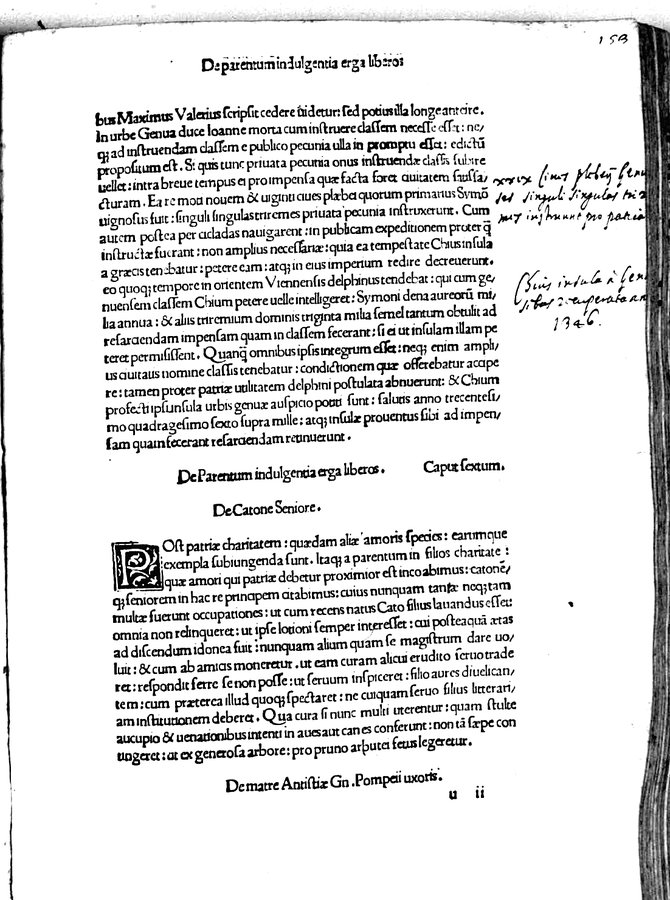 153
De parentum indulgentia erga liberos
bus Maximus Valerius scripsit cedere uidetur: sed potius illa longe anteire.
In urbe Genua duce Ioanne morta cum instruere classem necesse esset: ne/
q; ad instruendam classem e publico pecunia ulla in promptu esset: edictū
propositum est. Si quis tunc priuata pecunia onus instruendæ classis subire
uellet: intra breue tempus ei pro impensa quæ facta foret ciuitatem satisfa/
cturam. Ea re moti nouem & uiginti ciues plæbei quorum primarius Symō
uignosus fuit: singuli singulas triremes priuata pecunia instruxerunt. Cum
autem postea per cicladas nauigarent: in publicam expeditionem propter q̄
instructæ fuerant: non amplius necessariæ: quia ea tempestate Chius insula
a græcis tenebatur: petere eam: atq; in eius imperium redire decreuerunt.
eo quoq; tempore in orientem Viennensis delphinus tendebat: qui cum ge/
nuensem classem Chium petere uelle intelligeret: Symoni dena aureorū mi/
lia annua: & aliis triremium dominis triginta milia semel tantum obtulit ad
resarciendam impensam quam in classem fecerant: si ei ut insulam illam pe
teret permisissent. Quanq̄ omnibus ipsis integrum esset: neq; enim ampli/
us ciuitatis nomine classis tenebatur: condictionem quæ offerebatur accipe
re: tamen propter patriæ utilitatem delphini postulata abnuerunt: & Chium
profecti ipsi insula urbis genuæ auspicio potiti sunt: salutis anno trecentesi/
mo quadragesimo sexto supra mille: atq; insulæ prouentus sibi ad impen/
sam quam fecerant resarciendam retinuerunt.
xxix ciues plebeij Genu
ses singuli singulas tri
mes instruunt pro patria
Chius insula à Gen
sibus recuperata an
1346.
De Parentum indulgentia erga liberos. Caput sextum.
De Catone Seniore.
POst patriæ charitatem: quædam aliæ amoris species: earumque
exempla subiungenda sunt. Itaq; a parentum in filios charitate:
quæ amori qui patriæ debetur proximior est incohabimus: catonē/
q; seniorem in hac re principem citabimus: cuius nunquam tantæ neq; tam
multæ fuerunt occupationes: ut cum recens natus Cato filius lauandus esset:
omnia non relinqueret: ut ipse lotioni semper interesset: cui posteaquā ætas
ad discendum idonea fuit: nunquam alium quam se magistrum dare uo/
luit: & cum ab amicis moneretur. ut eam curam alicui erudito seruo trade
ret: respondit ferre se non posse: ut seruum inspiceret: filio aures diuelican/
tem: cum præterea illud quoq; spectaret: ne cuiquam seruo filius litterari/
am institutionem deberet. Qua cura si nunc multi uterentur: quam stulte
aucupio & uenationibus intenti in aues aut canes conferunt: non tā sæpe con
tingeret: ut ex generosa arbore: pro pruno arbutei fetus legeretur.
De matre Antistiæ Gn. Pompeii uxoris.
u ii